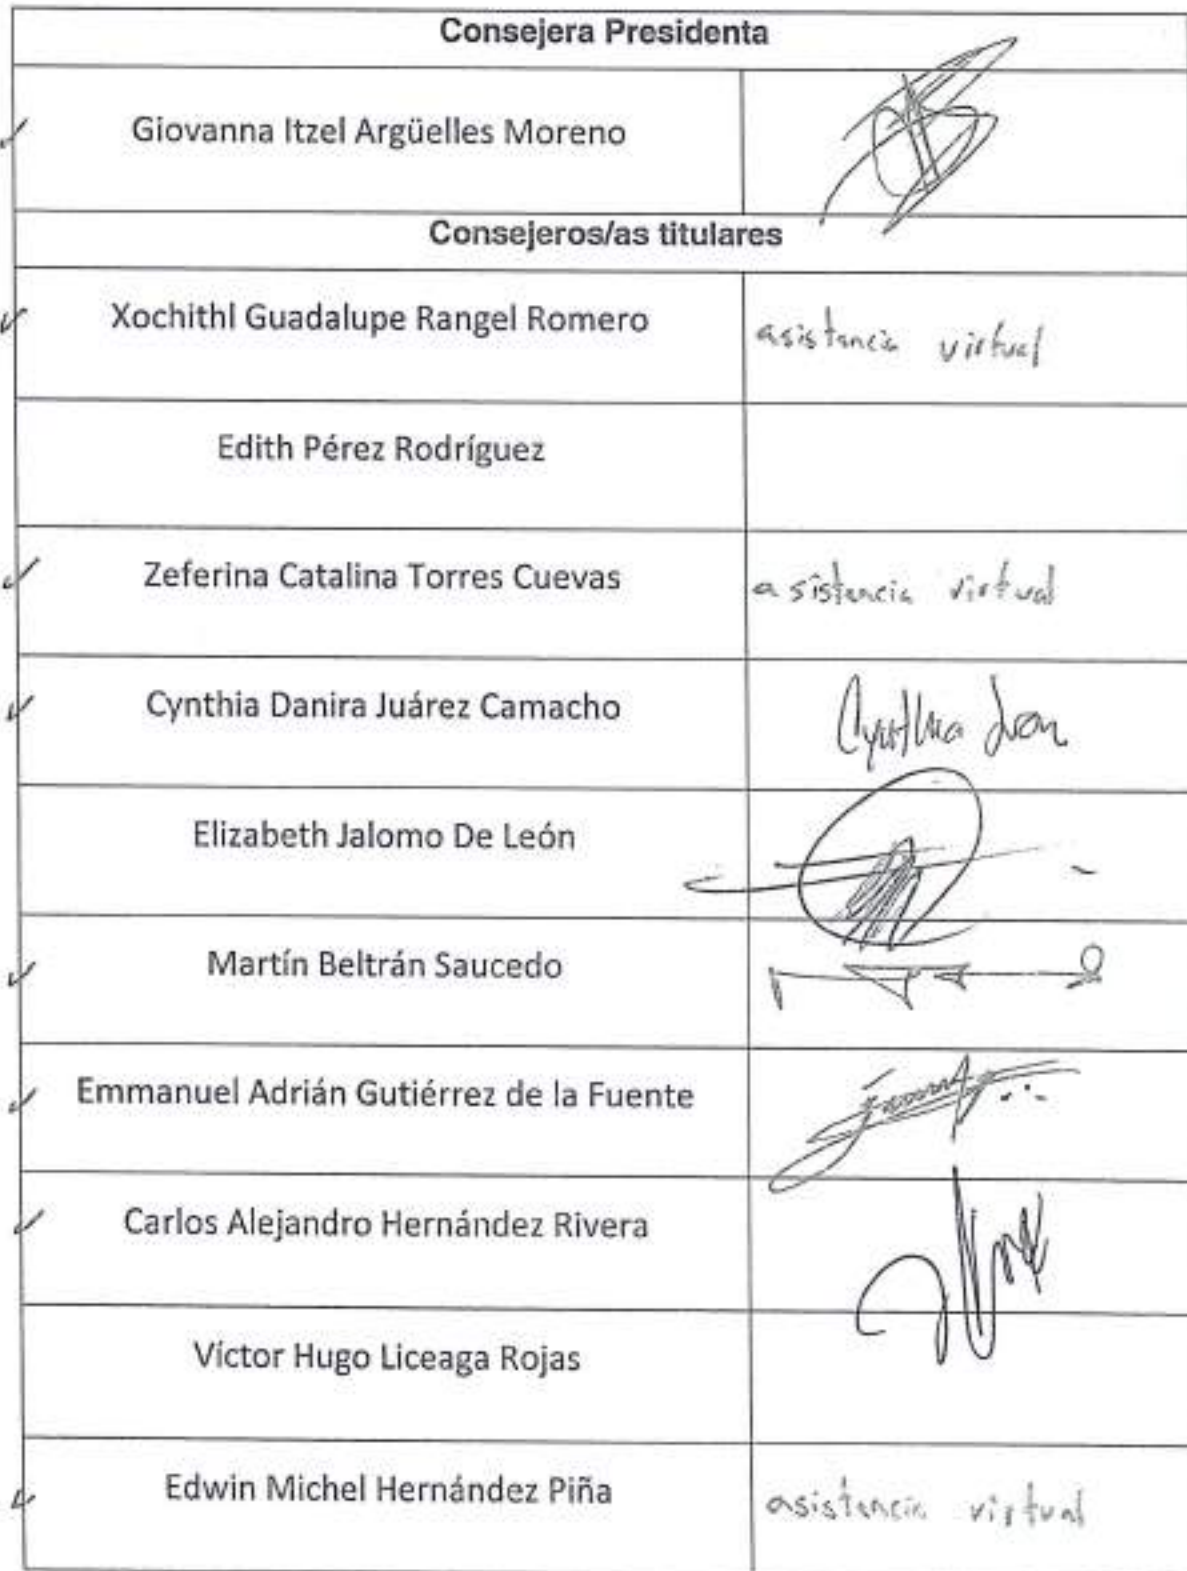 Consejera Presidenta
Giovanna Itzel Argüelles Moreno
Consejeros/as titulares
Xochithl Guadalupe Rangel Romero
asistencia virtual
Edith Pérez Rodríguez
Zeferina Catalina Torres Cuevas
asistencia virtual
Cynthia Danira Juárez Camacho
Cynthia
Elizabeth Jalomo De León
Martín Beltrán Saucedo
Emmanuel Adrián Gutiérrez de la Fuente
Carlos Alejandro Hernández Rivera
Víctor Hugo Liceaga Rojas
Edwin Michel Hernández Piña
asistencia virtual